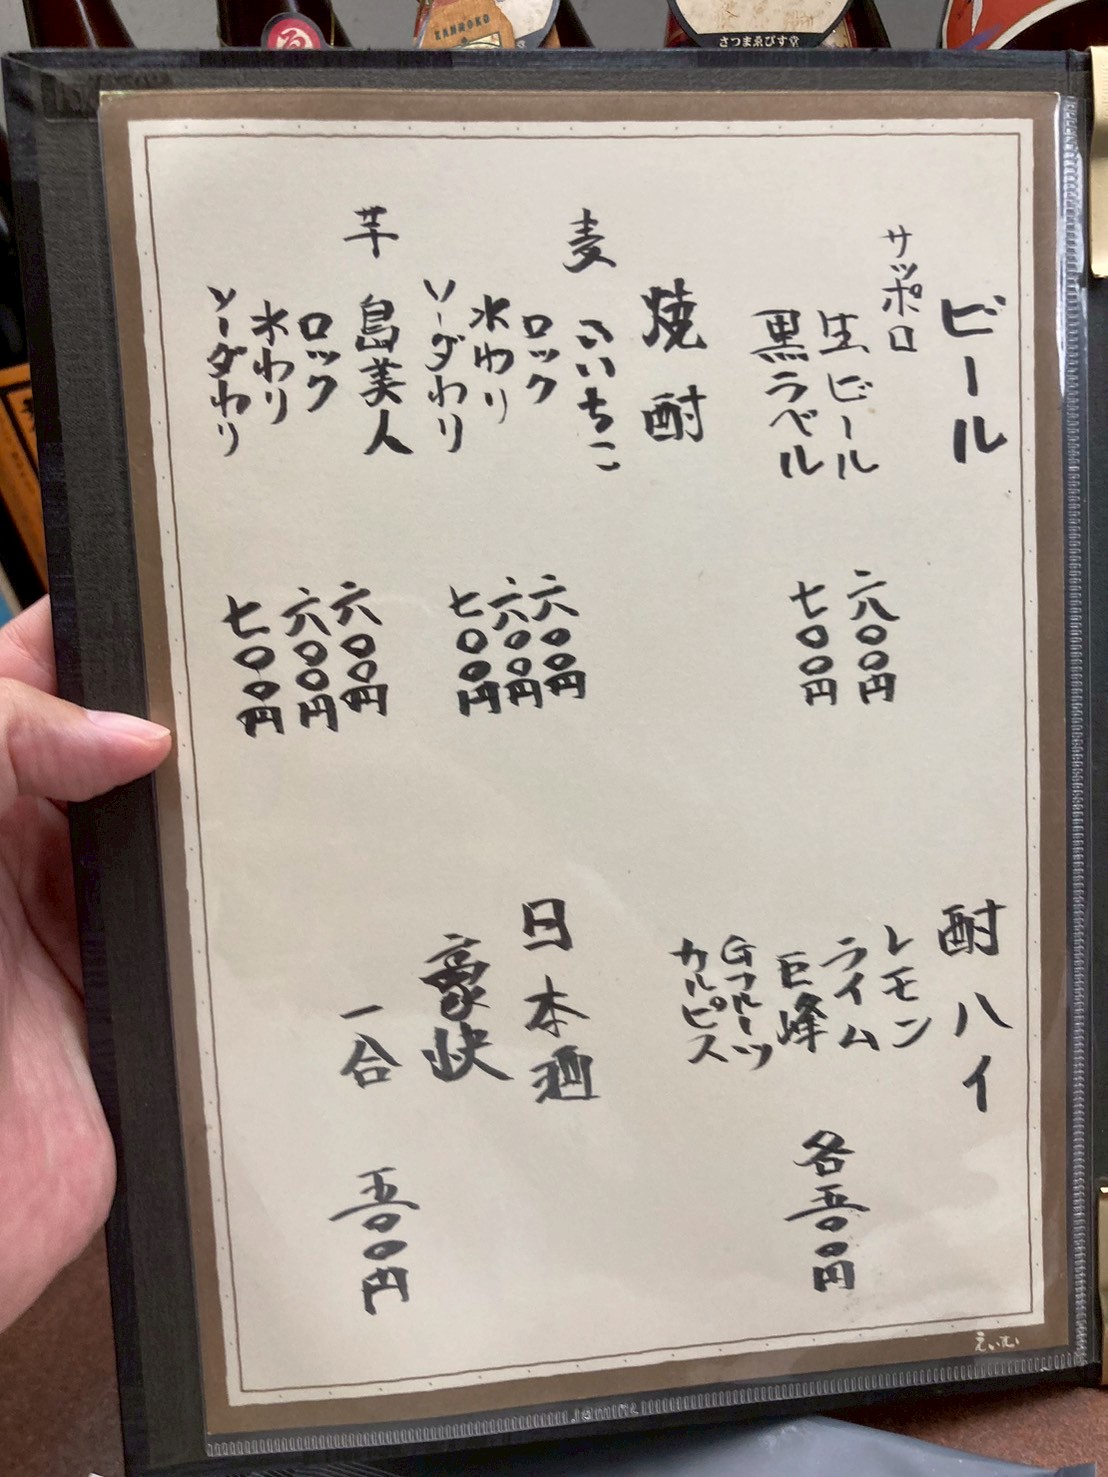 KANROKO
さつまゑびす堂
ビール
サッポロ
生ビール 六八〇〇円
黒ラベル 七〇〇円
焼酎
麦 いいちこ
ロック 六〇〇円
水わり 六〇〇円
ソーダわり 七〇〇円
芋 島美人
ロック 六〇〇円
水わり 六〇〇円
ソーダわり 七〇〇円
酎ハイ
レモン
ライム
巨峰
Gフルーツ
カルピス
各五〇〇円
日本酒
豪快
一合 五〇〇円
えいむ